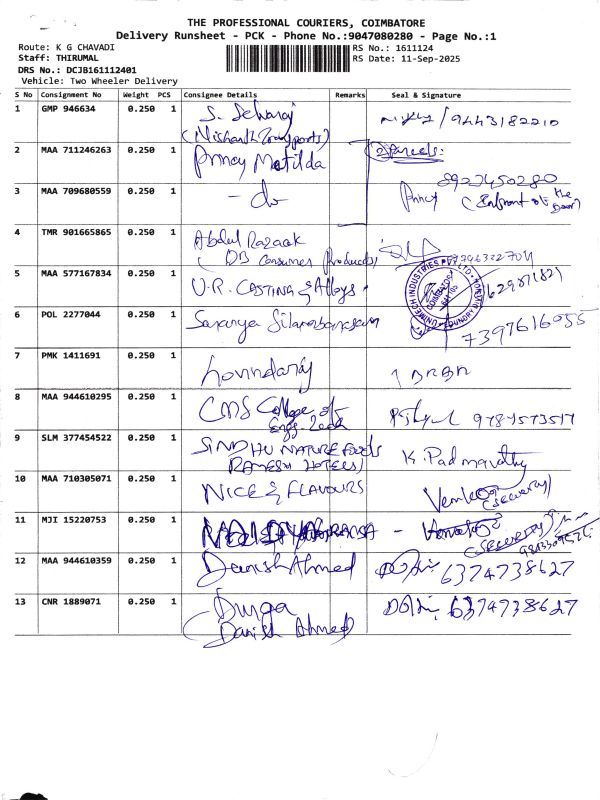 THE PROFESSIONAL COURIERS, COIMBATORE
Delivery Runsheet - PCK - Phone No.:9047080280 - Page No.:1
Route: K G CHAVADI
RS No.: 1611124
Staff: THIRUMAL
RS Date: 11-Sep-2025
DRS No.: DCJB161112401
Vehicle: Two Wheeler Delivery
S No Consignment No Weight PCS Consignee Details Remarks Seal & Signature
1 GMP 946634 0.250 1 S. Selvaraj
(Nishanth Transports) / 9443182210
2 MAA 711246263 0.250 1 Princy Matilda 2 parcels:
3 MAA 709680559 0.250 1 - do Princy 8922450280
(Infront of the door)
4 TMR 901665865 0.250 1 Abdul Razaak
(DB Consumer Products)
5 MAA 577167834 0.250 1 U.R. CASTING & Alloys
UNIMECH INDUSTRIES PVT LTD
6 POL 2277044 0.250 1 Saranya 7397616055
7 PMK 1411691 0.250 1
8 MAA 944610295 0.250 1 CMS College of
Engg.
9 SLM 377454522 0.250 1 SINDHU NATURE FOODS K. Padmavathy
RAMESH HOTELS)
10 MAA 710305071 0.250 1 NICE & FLAVOURS
(security)
11 MJI 15220753 0.250 1
(security)
12 MAA 944610359 0.250 1 Danish Ahmed 6374738627
13 CNR 1889071 0.250 1 Durga 6374738627
(Danish Ahmed